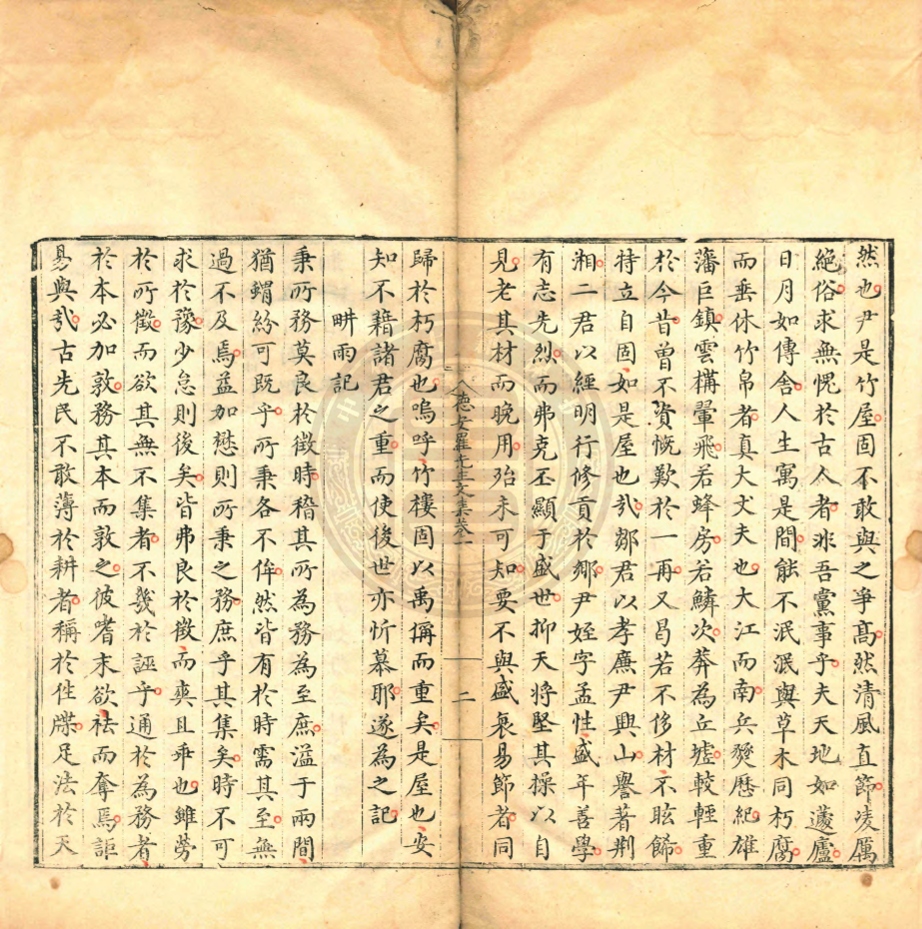 然也尹是竹屋固不敢與之爭髙然清風直節凌厲
絶俗求無愧於古人者非吾黨事乎夫天地如蘧廬
日月如傳舎人生寓是間能不泯泯與草木同朽腐
而垂休竹帛者真大丈夫也大江而南兵燹歴紀雄
藩巨鎮雲構翬飛若蜂房若鱗次莽為丘墟較輕重
於今昔曽不資慨歎於一再又曷若不侈材不眩餙
特立自固如是屋也㢤鄒君以孝亷尹興山譽著荆
湘二君以經明行修貢於鄉尹姪字孟性盛年善學
有志先烈而弗克丕顯于盛世抑天将堅其操以自
見老其材而晚用殆未可知要不與盛衰易節者同
德安羅先生文集卷一
二
歸於朽腐也嗚呼竹樓固以禹偁而重矣是屋也安
知不籍諸君之重而使後世亦忻慕耶遂為之記
畊雨記
秉所務莫良於徴時稽其所為務為至庶溢于兩間
猶蝟紛可既乎所秉各不侔然皆有於時需其至無
過不及焉益加懋則所秉之務庶乎其集矣時不可
求於豫少怠則後矣皆弗良於徴而爽且乖也雖勞
於所徴而欲其無不集者不幾於誣乎通於為務者
於本必加敦務其本而敦之彼嗜末欲祛而奪焉詎
易與㢤古先民不敢薄於耕者稱於性牒足法於天